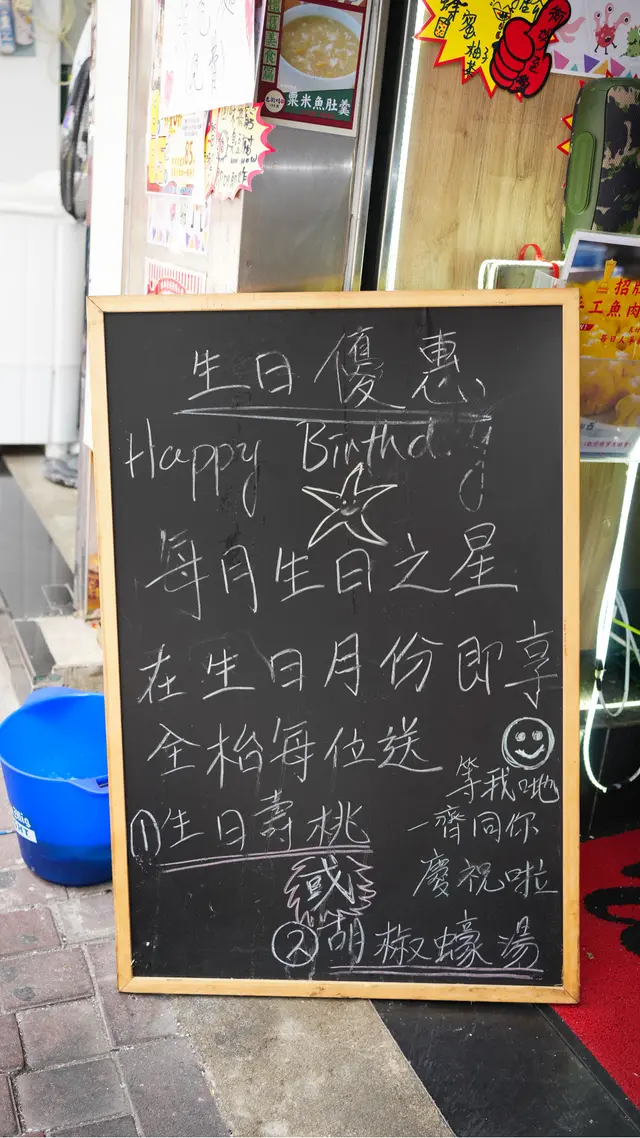 粟米魚肚羹
蜂蜜
柚子
茶
招牌
手工魚肉
生日優惠
Happy Birthd
每月生日之星
在生日月份即享
全枱每位送
等我哋
一齊同你
慶祝啦
①生日壽桃
或
②胡椒蠔湯